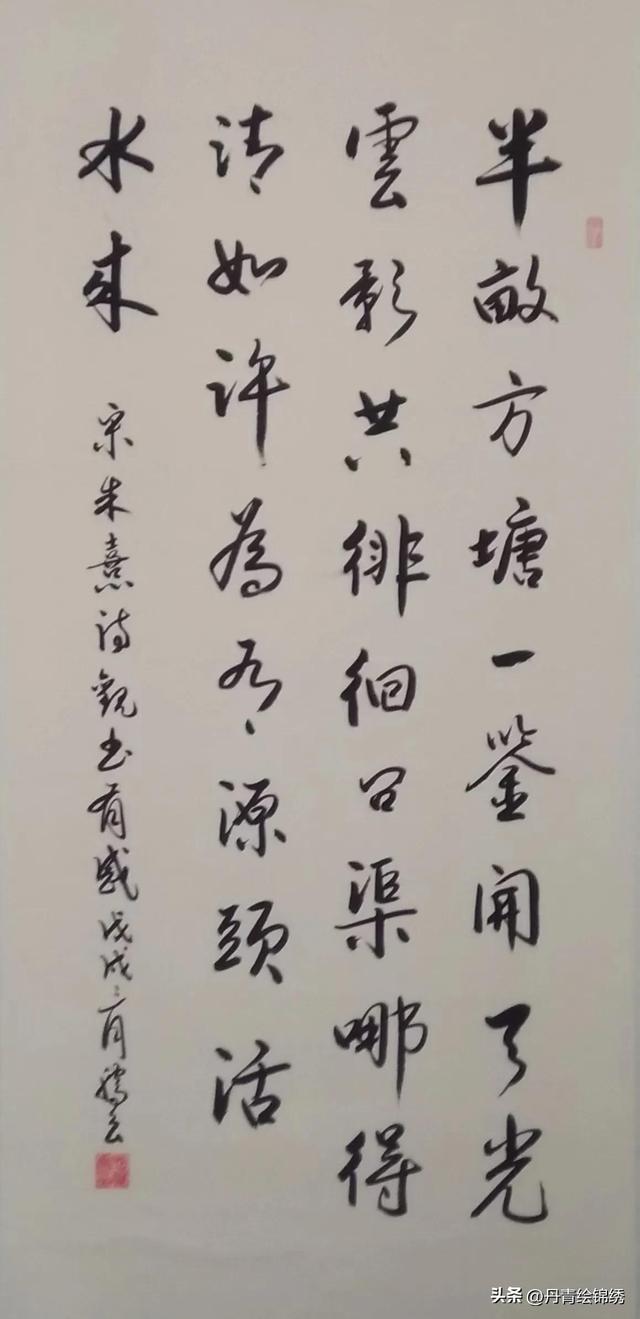 半畝方塘一鉴開天光
雲影共徘徊问渠哪得
清如许為有源頭活
水来
宋朱熹诗觀书有感戊戌二月
头条 @丹青绘锦绣